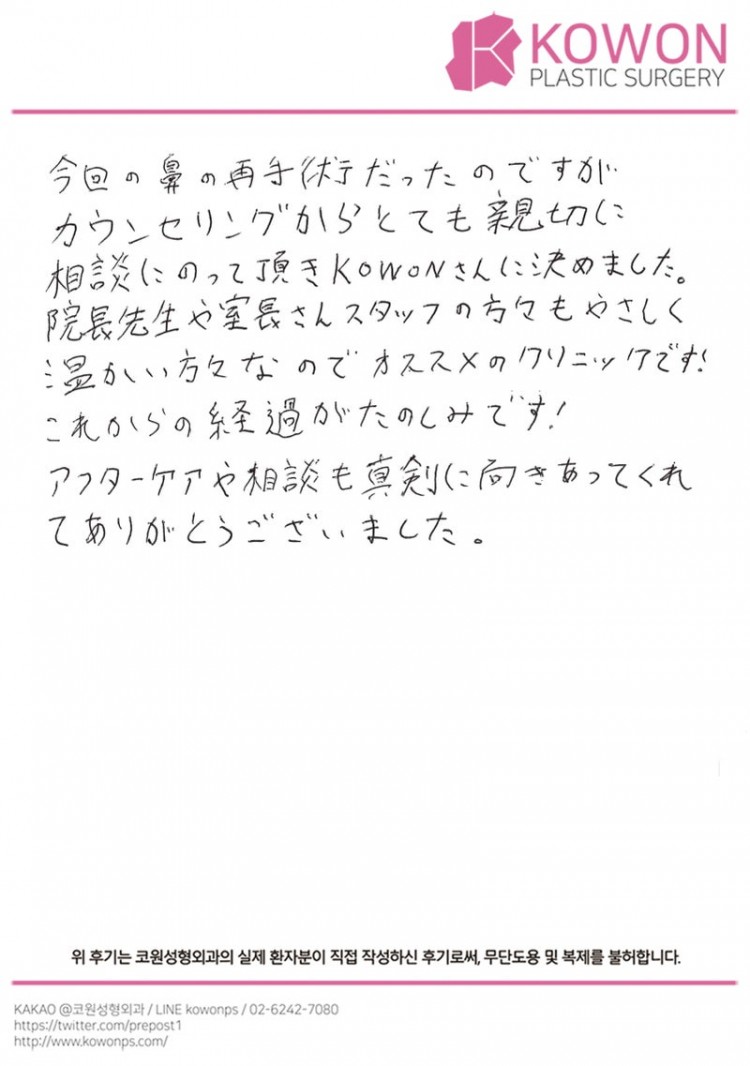 KOWON
PLASTIC SURGERY
今回の鼻の再手術だったのですが
カウンセリングからとても親切に
相談にのって頂きKOWONさんに決めました。
院長先生や室長さんスタッフの方々もやさしく
温かい方々なのでオススメのクリニックです!
これからの経過がたのしみです!
アフターケアや相談も真剣に向きあってくれ
てありがとうございました。
위 후기는 코원성형외과의 실제 환자분이 직접 작성하신 후기로써, 무단도용 및 복제를 불허합니다.
KAKAO @코원성형외과 / LINE kowonps / 02-6242-7080
https://twitter.com/prepost1
http://www.kowonps.com/